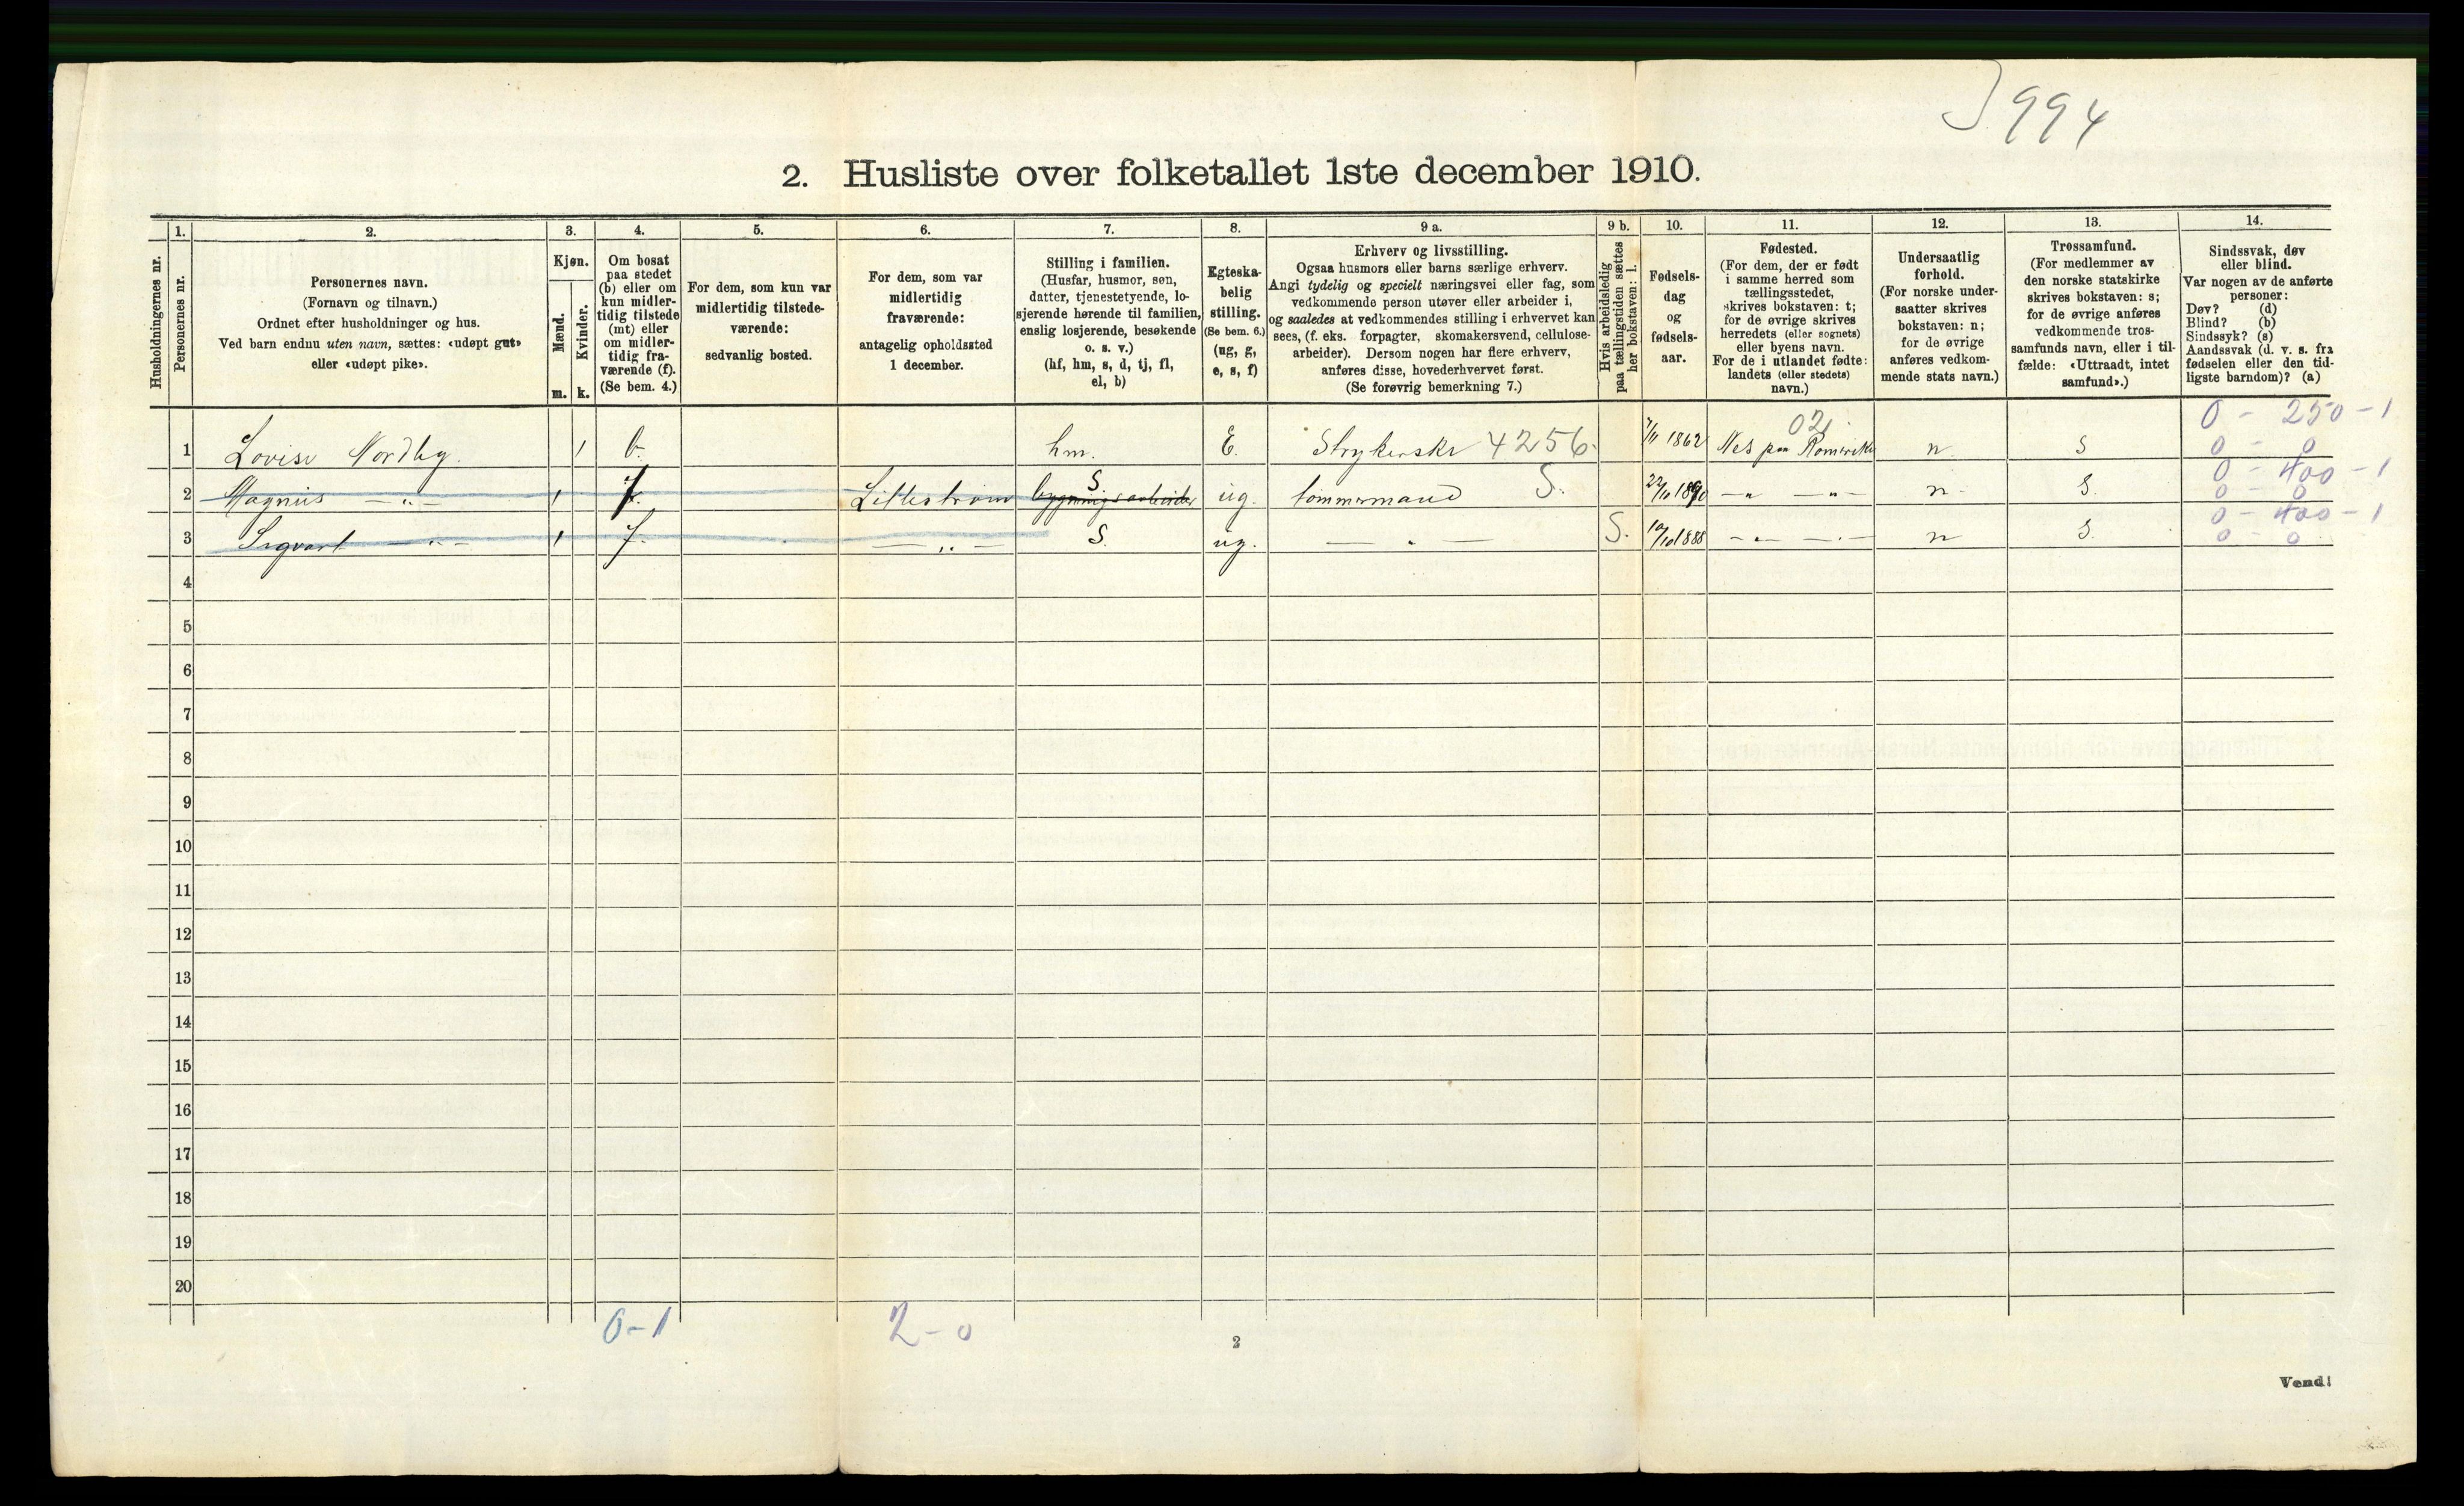 994
2. Husliste over folketallet 1ste december 1910.
Husholdningernes nr.
1.
Personernes nr.
2.
Personernes navn.
(Fornavn og tilnavn.)
Ordnet efter husholdninger og hus.
Ved barn endnu uten navn, sættes: «udøpt gut»
eller «udøpt pike».
3.
Kjøn.
Mænd.
Kvinder.
m. k.
4.
Om bosat
paa stedet
(b) eller om
kun midler-
tidig tilstede
(mt) eller
om midler-
tidig fra-
værende (f).
(Se bem. 4.)
5.
For dem, som kun var
midlertidig tilstede-
værende:
sedvanlig bosted.
6.
For dem, som var
midlertidig
fraværende:
antagelig opholdssted
1 december.
7.
Stilling i familien.
(Husfar, husmor, søn,
datter, tjenestetyende, lo-
sjerende hørende til familien,
enslig losjerende, besøkende
o. s. v.)
(hf, hm, s, d, tj, fl,
el, b)
8.
Egteska-
belig
stilling.
(Se bem. 6.)
(ug, g,
e, s, f)
9 a.
Erhverv og livsstilling.
Ogsaa husmors eller barns særlige erhverv.
Angi tydelig og specielt næringsvei eller fag, som
vedkommende person utøver eller arbeider i,
og saaledes at vedkommendes stilling i erhvervet kan
sees, (f. eks. forpagter, skomakersvend, cellulose-
arbeider). Dersom nogen har flere erhverv,
anføres disse, hovederhvervet først.
(Se forøvrig bemerkning 7.)
9 b.
Hvis arbeidsledig
paa tællingstiden sættes
her bokstaven: l.
10.
Fødsels-
dag
og
fødsels-
aar.
11.
Fødested.
(For dem, der er født
i samme herred som
tællingsstedet,
skrives bokstaven: t;
for de øvrige skrives
herredets (eller sognets)
eller byens navn.
For de i utlandet fødte:
landets (eller stedets)
navn.)
12.
Undersaatlig
forhold.
(For norske under-
saatter skrives
bokstaven: n;
for de øvrige
anføres vedkom-
mende stats navn.)
13.
Trossamfund.
(For medlemmer av
den norske statskirke
skrives bokstaven: s;
for de øvrige anføres
vedkommende tros-
samfunds navn, eller i til-
fælde: «Uttraadt, intet
samfund».)
14.
Sindssvak, døv
eller blind.
Var nogen av de anførte
personer:
Døv? (d)
Blind? (b)
Sindssyk? (s)
Aandssvak (d. v. s. fra
fødselen eller den tid-
ligste barndom)? (a)
02. 0 - 250 - 1
1 Lovise Nordby. 1 b. hm. E. Strykerske 4256. 7/11 1862 Nes paa Romerike n s 0 - 0
S 0 - 400 - 1
2 Magnus —„— 1 f. Lillestrøm bygningsarbeider ug. tømmermand S. 22/11 1890 —„— —„— n S. 0 - 0
0 - 400 - 1
3 Sigvart —„— 1 f. —„— S. ug. —„— S. 10/10 1888 —„— —„— n S. 0 - 0
4
5
6
7
8
9
10
11
12
13
14
15
16
17
18
19
20
0 - 1 2 - 0
2
Vend!